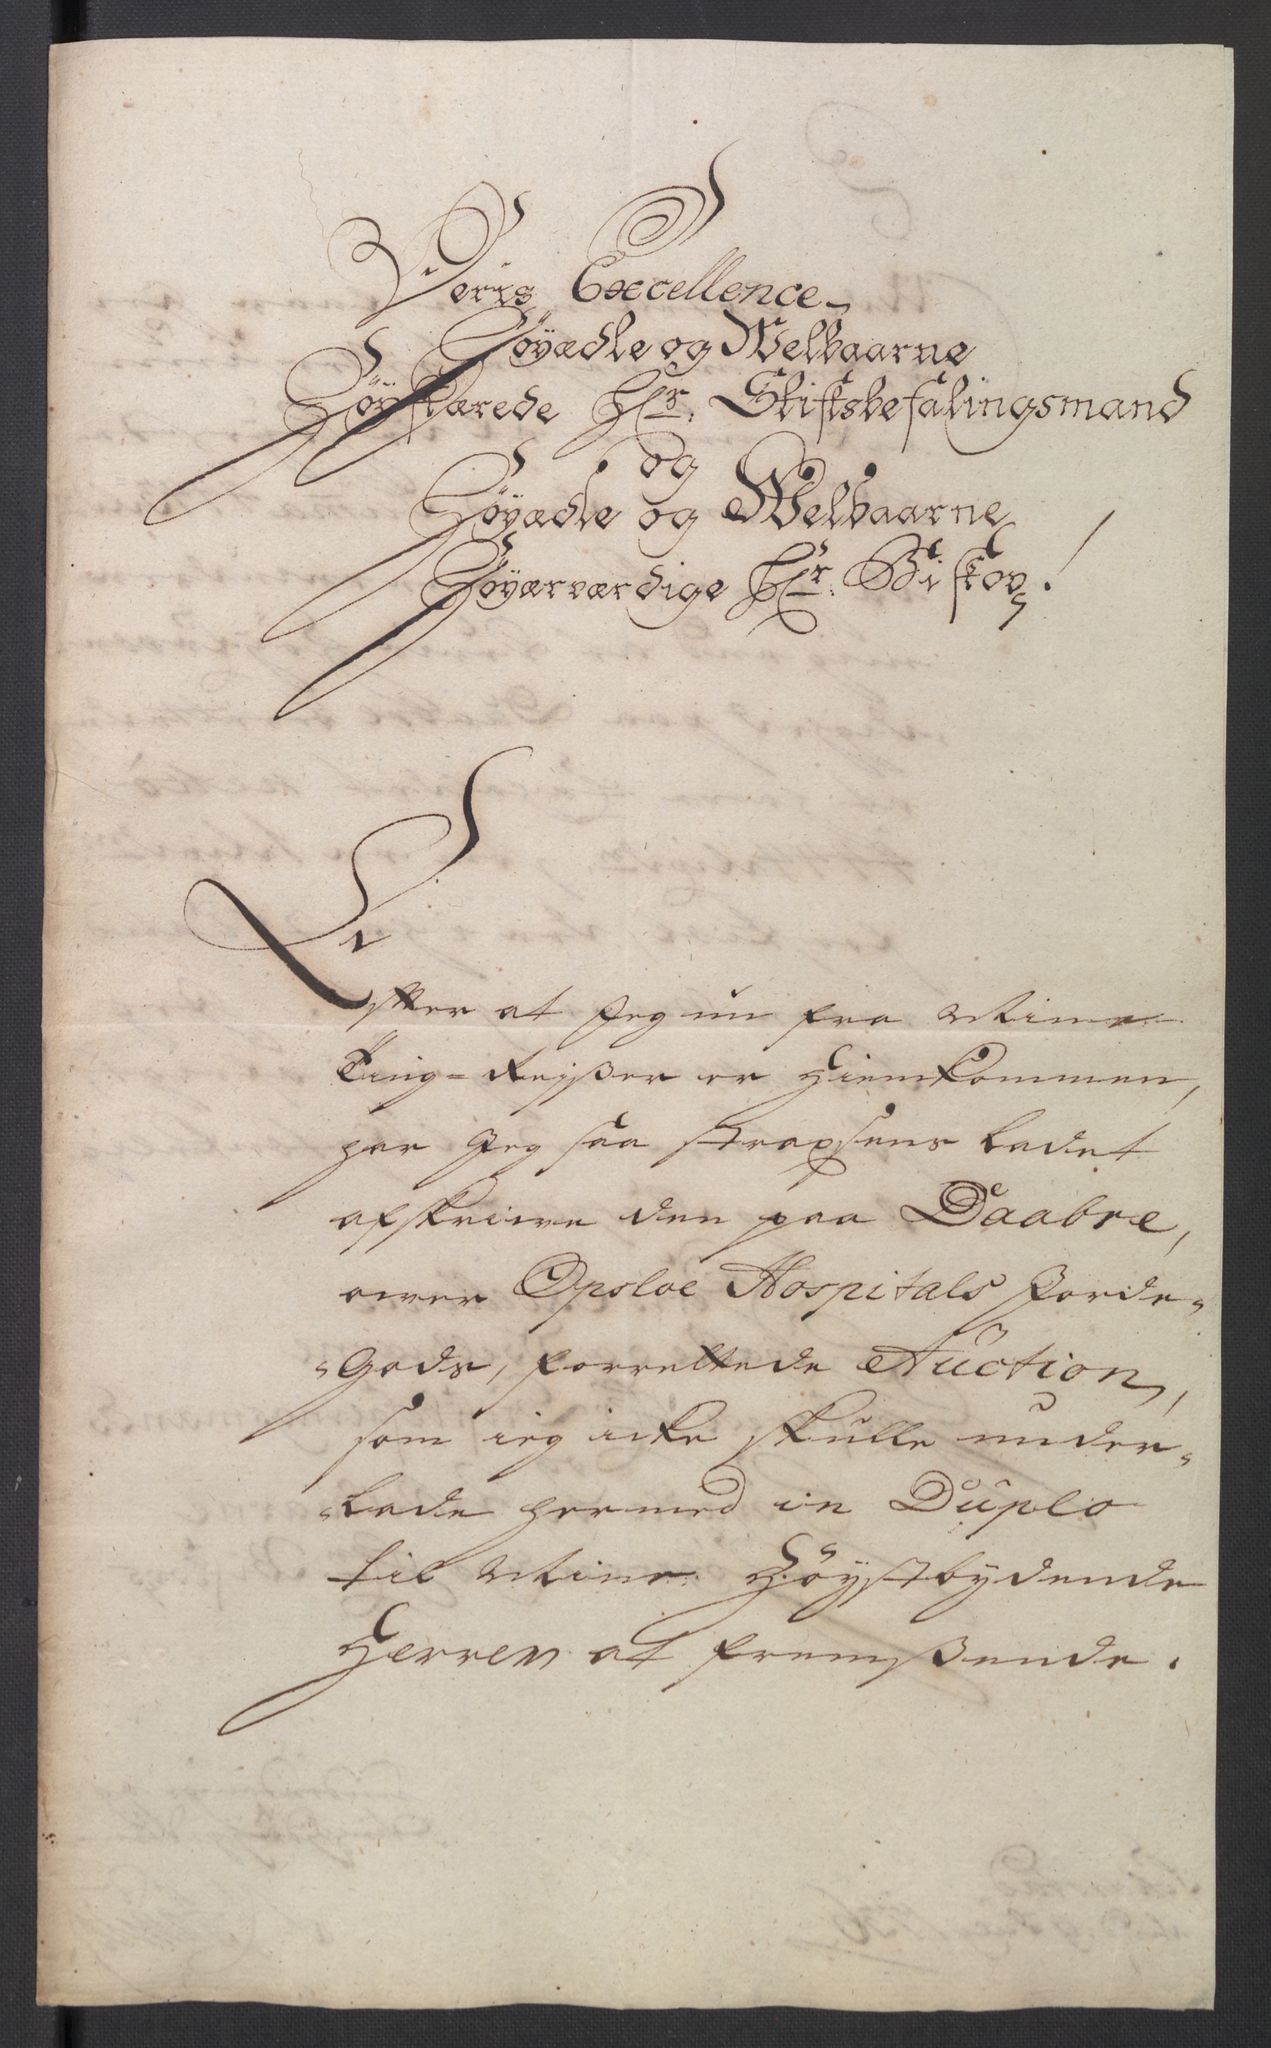 Deris Excellence
Höyædle og Welbaarne
Höystærede Hr. Stiftsbefalingsmand
og
Höyædle og Welbaarne
Höyærværdige Hr. Biskop!
Efter at Jeg nu fra Mine
Ting-Reyßer er Hiemkommen,
har Jeg saa strapsens ladet
afskrive den paa Daabre,
over Opsloe Hospitals Jorde-
-Gods, forrettede Auction,
som ieg icke skulle under-
-lade hermed in Duplo
til Mine Höystbydende
Herrer at fremßende.